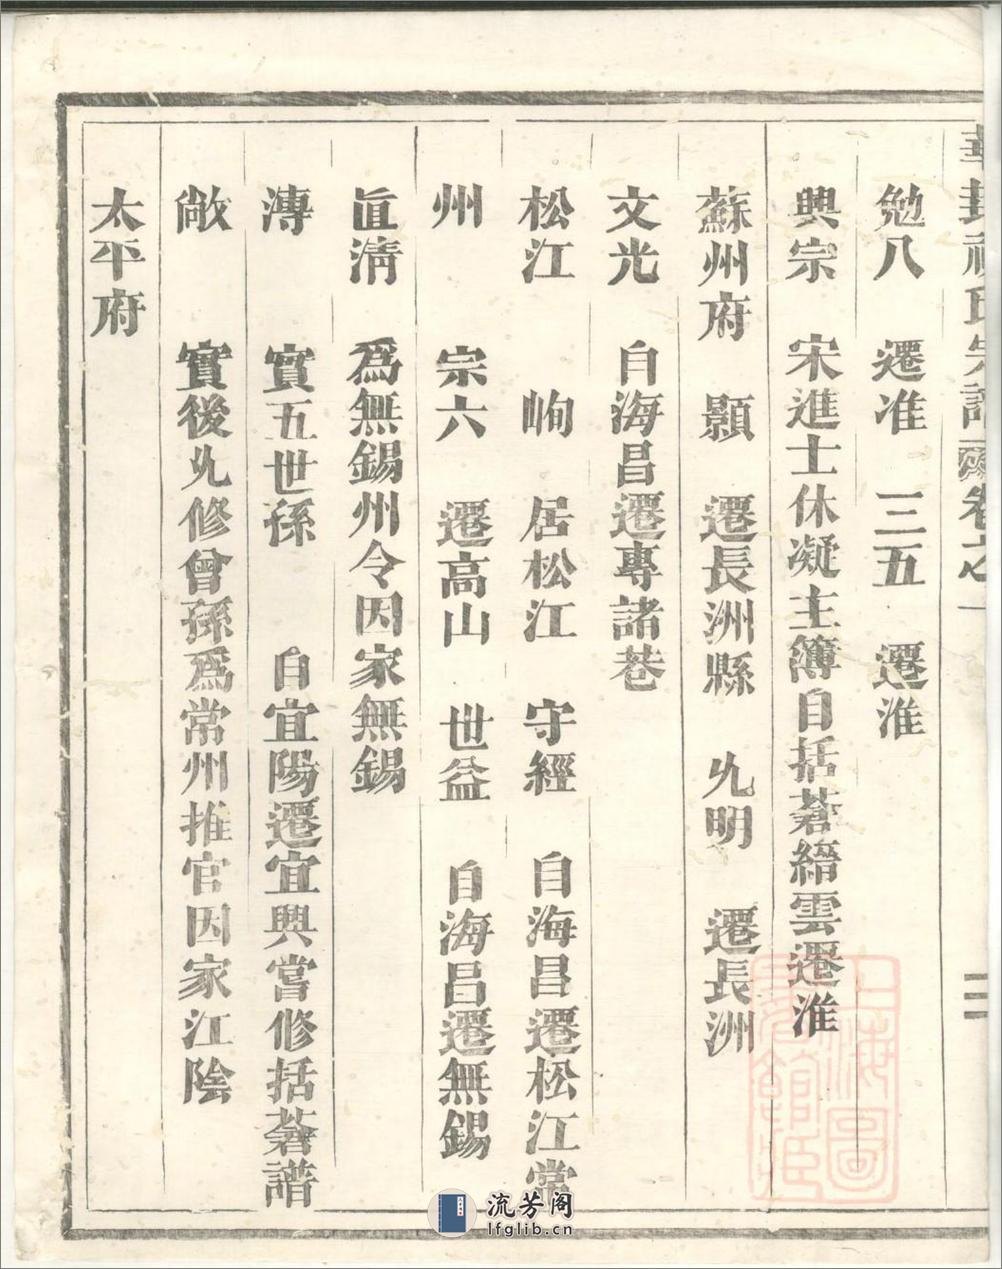 華封祝氏宗譜 卷之一
二
勉八 遷淮 三五 遷淮
興宗 宋進士休凝主簿自括蒼縉雲遷淮
蘇州府 顥 遷長洲縣 允明 遷長洲
文光 自海昌遷專諸巷
松江 峋 居松江 守經 自海昌遷松江常
州 宗六 遷高山 世益 自海昌遷無錫
直清 爲無錫州令因家無錫
溥 實五世孫 自宜陽遷宜興嘗修括蒼譜
敞 實後允修曾孫爲常州推官因家江陰
太平府
上海圖書館藏
流芳阁
lfglib.cn